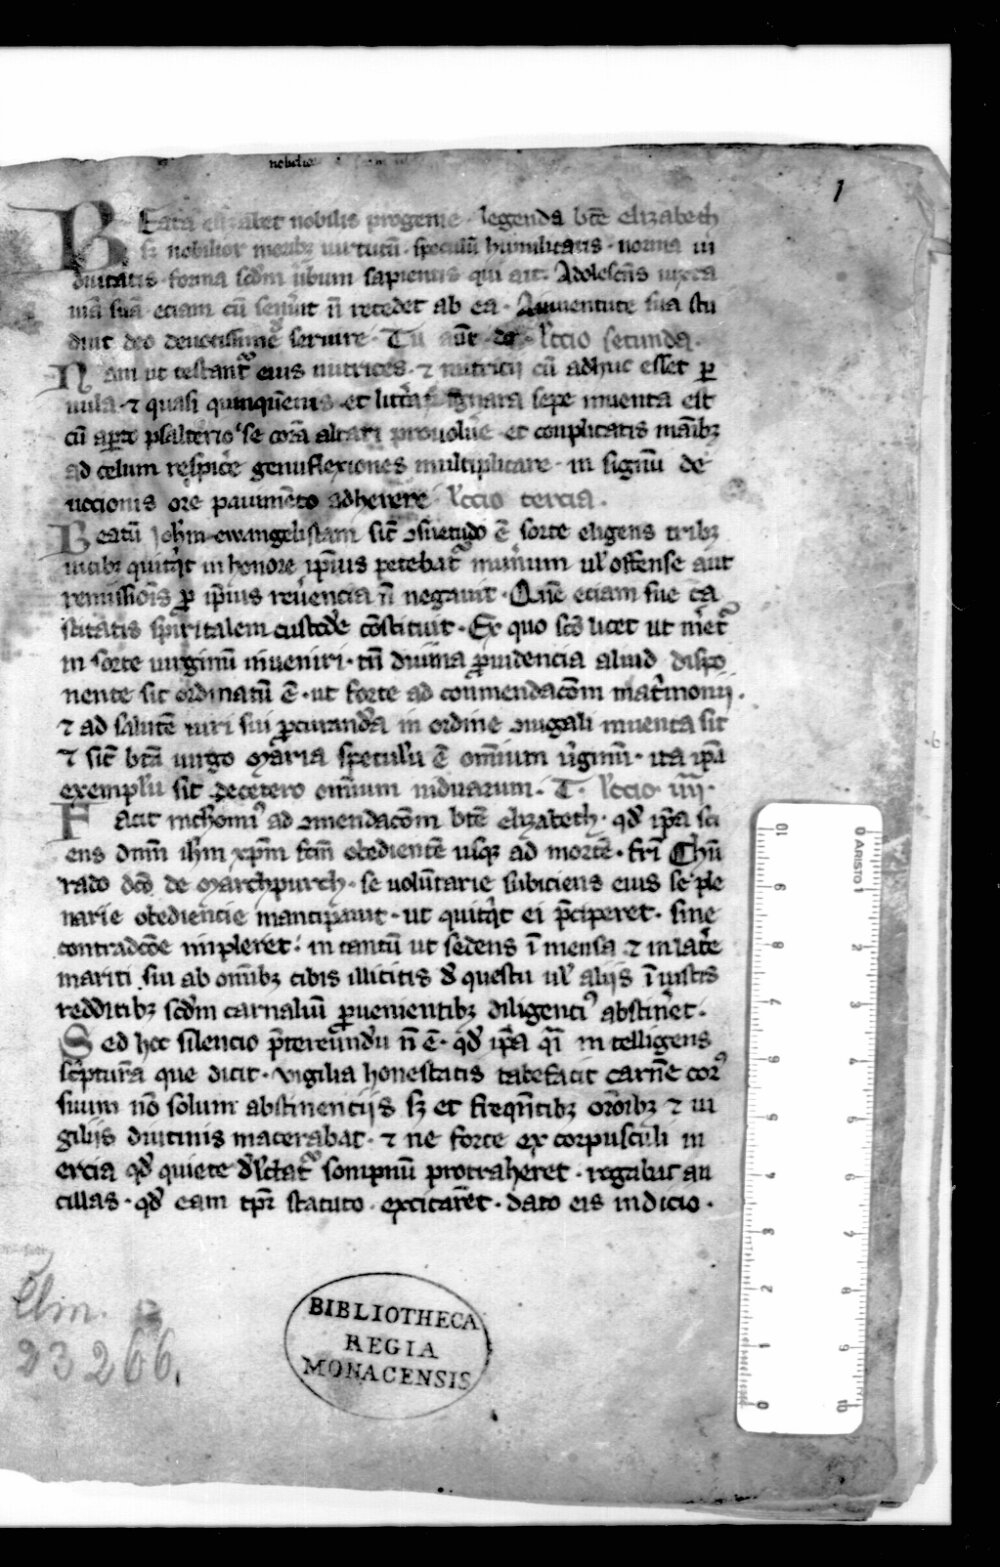 nobilio
1
Eata elizabet nobilis progenie · legenda btē elizabeth
sꝫ nobilior moribꝫ uirtutū · speculū humilitatis · norma ui
duitatis · forma scd̄m ūbum sapientis qui ait · Adolescēs iuxta
uiā suā · eciam cū senuit n̄ recedet ab ea · A iuuentute sua stu
duit deo deuotissime seruire · Tu aūt · lccio secunda ·
Nam ut testantr̄ eius nutrices · ⁊ nutritij cū adhuc esset ꝑ
uula · ⁊ quasi quinquēnis · et litterar̄ ignara sepe inuenta est
cū aꝑto psalterio se corā altari prouolue et conplicatis manibꝫ
ad celum respice᷑ genuflexiones multiplicare · in signū de
uocionis ore᷑ pauimēto adherere᷑ lccio tercia ·
Beatū Joh̄m ewangelistam sic̄ ↄsuetudo ē sorte eligens tribꝫ
uicibꝫ quitqt in honore ip̄ius petebat᷑ munum ul' offense aut
remissiōis ꝓ ip̄ius reu̓encia n̄ negauit · Quē eciam sue ca
stitatis spiritalem custode᷑ cōstituit · Ex quo scō licet ut mer̄et᷑
in sorte uirginū inueniri · tn̄ diuina ꝓuidencia aliud dispo
nente sit ordinatū ē · ut forte ad conmendacōm mat̓monij ·
⁊ ad salutē uiri sui ꝓcuranda in ordine ↄiugali inuenta sit
⁊ sic̄ btā uirgo Maria speculū ē omīum u̓ginū · ita ip̄a
exemplū sit decetero omīum uiduarum · T · lccio · iiii ·
Facit inch̓omi᷒ ad ↄmendacōm btē elizabeth · qd̄ ip̄a sci
ens dn̄m ih̄m xp̄m fcm̄ obedientē usqꝫ ad mortē · fr̄i Chū
rado dcō de Marchpurch · se uolūtarie subiciens eius se ple
narie obediencie mancipauit · ut quitqt ei p̄ciperet · sine
contradcōe impleret · in tantū ut sedens ī mensa ⁊ in latere᷑
mariti sui ab omībꝫ cibis illicitis de questu ul' alijs īiustis
redditibꝫ scd̄m carnaliū ꝓuenientibꝫ diligenti᷒ abstinet᷑ ·
Sed hoc silencio p̄tereūndū n̄ ē · qd̄ ip̄a qī intelligens
scͥpturā que dicit · vigilia honestatis tabefacit carnē cor᷒
suum nō solum abstinencijs sꝫ et freqn̄tibꝫ orōibꝫ ⁊ ui
gilijs diutinis macerabat · ⁊ ne forte ex corpusculi in
ercia qd̄ quiete dl'ctat᷑ sompnū protraheret · rogabat an
cillas · qd̄ eam tpr̄ statuto · excitarēt · dato eis indicio ·
Clm.
23266.
BIBLIOTHECA
REGIA
MONACENSIS
ARISTO